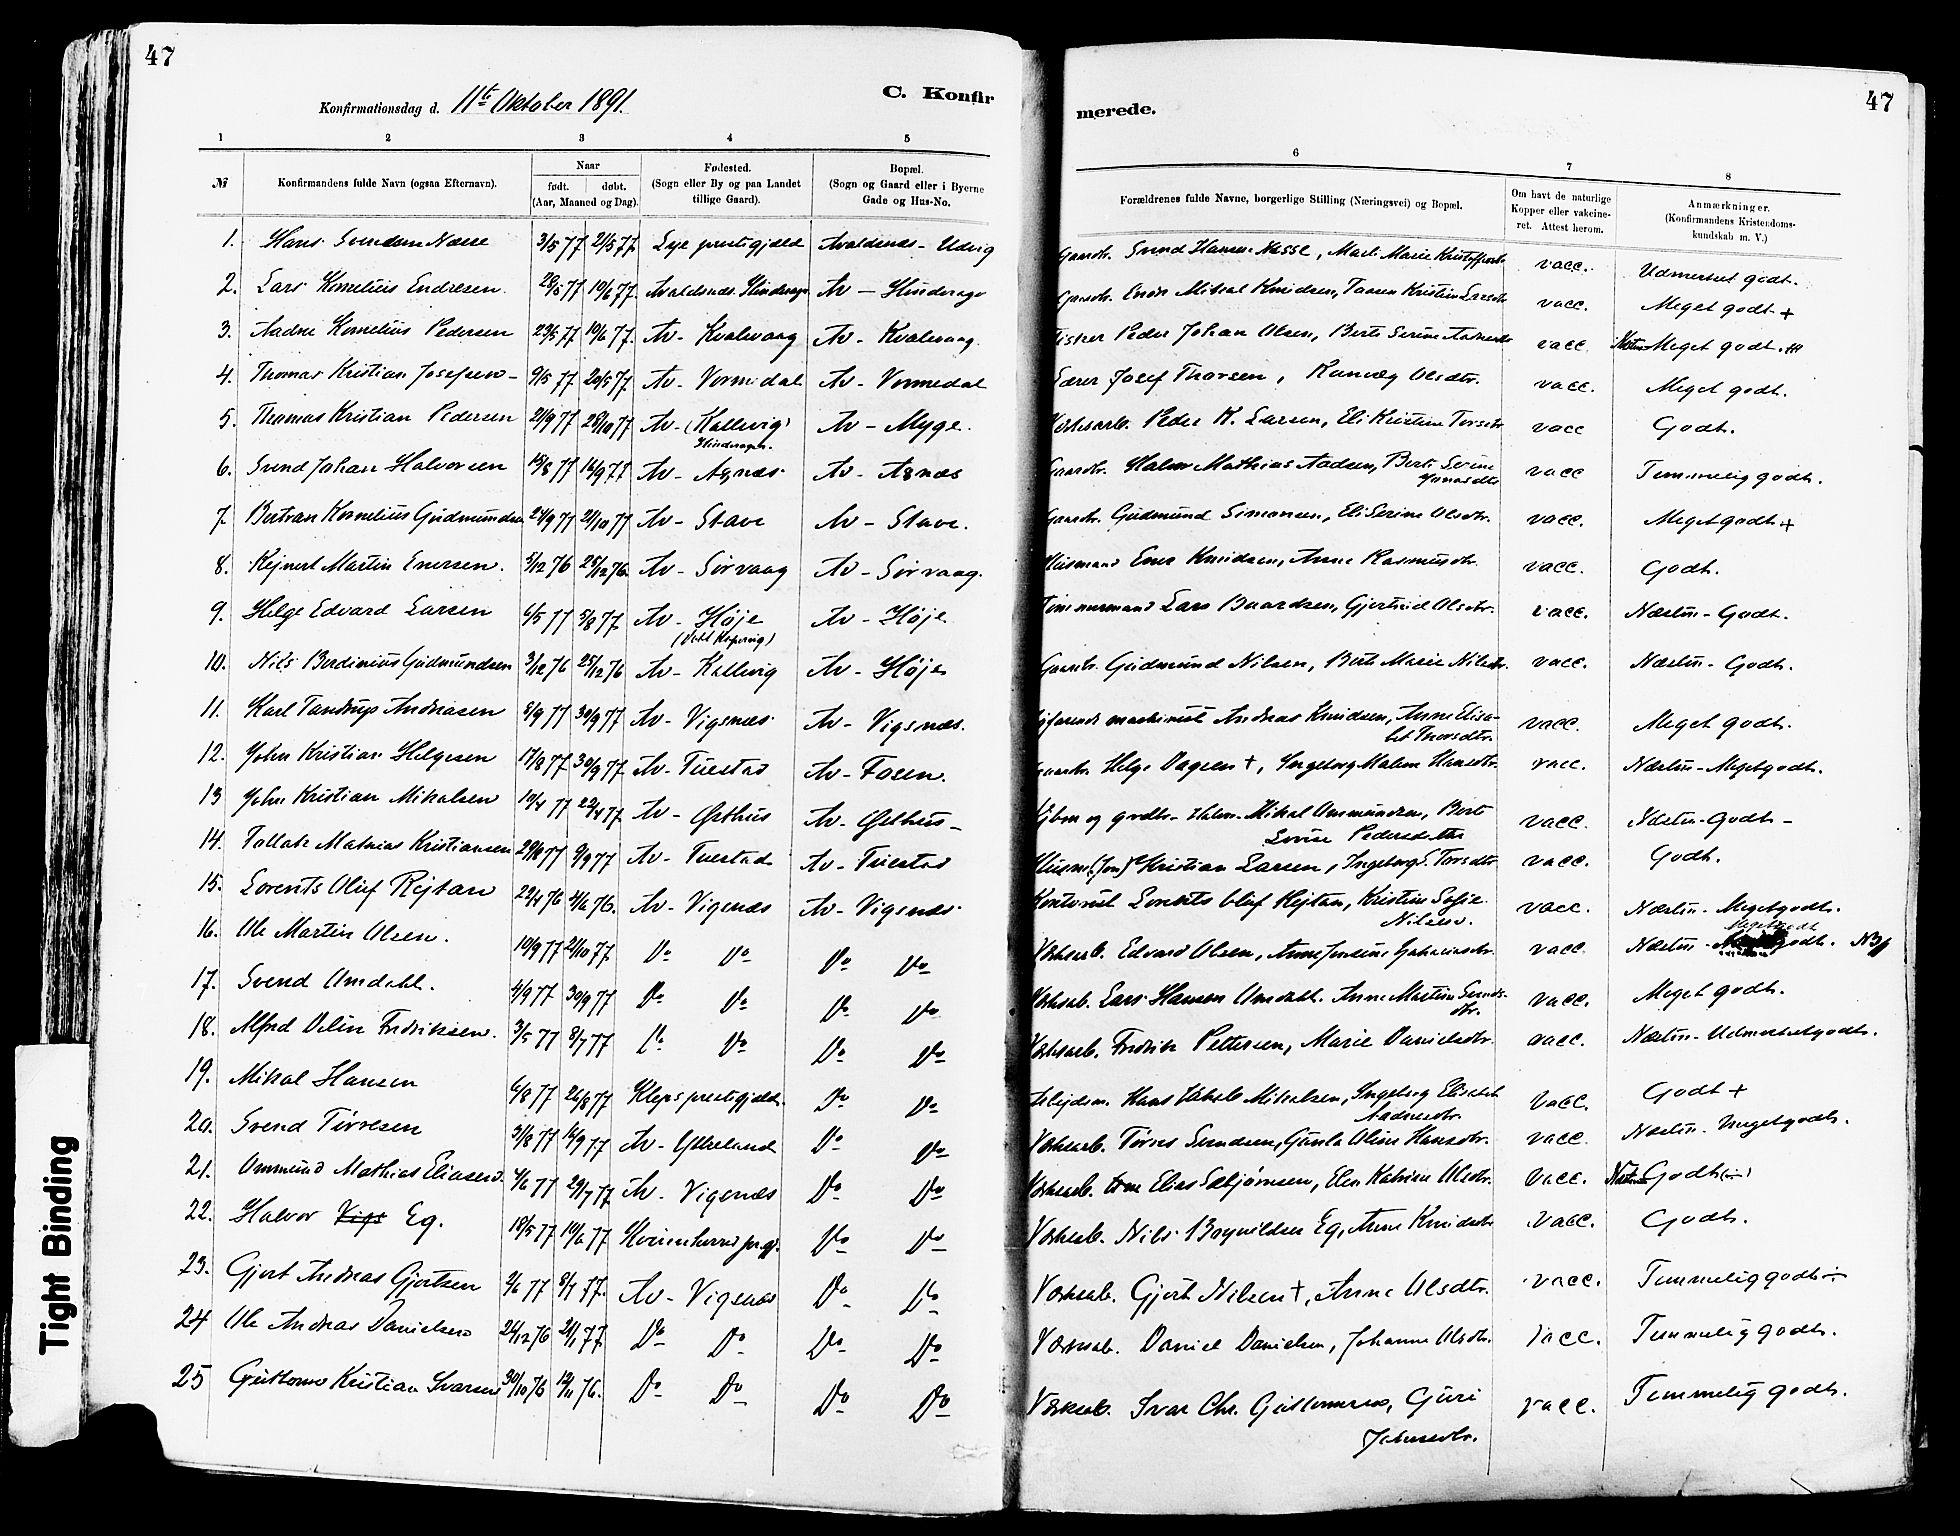 47
47
Konfirmationsdag d. 11te Oktober 1891.
C. Konfir
merede.
1 2 3 4 5
6 7 8
№
Konfirmandens fulde Navn (ogsaa Efternavn).
Naar
født. døbt.
(Aar, Maaned og Dag).
Fødested.
(Sogn eller By og paa Landet
tillige Gaard).
Bopæl.
(Sogn og Gaard eller i Byerne
Gade og Hus-No.
Forældrenes fulde Navne, borgerlige Stilling (Næringsvei) og Bopæl.
Om havt de naturlige
Kopper eller vakcine-
ret. Attest herom.
Anmærkninger.
(Konfirmandens Kristendoms-
kundskab m. V.)
1. Hans Svendsen Næsse 3/5 77 21/5 77. Lye prestegjeld Avaldsnæs - Udvig Svend Hansen Næsse, Marie vacc. Udmerket godt.
2. Lars Kornelius Endresen. 28/5 77 10/6 77. Avaldsnæs. Hinderager Av - Hinderager Endre Mikal Knudsen, Taaren Kristine vacc. Meget godt +
3. Aadne Kornelius Pedersen 23/5 77 10/6 77. Av - Kvalevaag Av - Kvalevaag Fisker Peder Johan Olsen, Berte Serine vacc Meget godt.
4. Thomas Kristian Josefsen - 9/5 77 20/5 77 Av - Vormedal Av - Vormedal Lærer Josef Thorsen, Ranveg Olsdtr. vacc. Meget godt.
5. Thomas Kristian Pedersen 21/9 77 28/10 77 Av - (Kallevig) Av - Myge. Peder K. Larsen, Eli Kristine vacc Godt.
Hinderager.
6. Svend Johan Halvorsen 15/8 77 16/9 77 Av - Agnæs Av - Agnæs Gaardbr. Halvor Mathias Aadsen, Berte Serine vacc Temmelig godt.
7. Bertran Kornelius Gudmundsen 24/9 77 21/10 77 Av - Stave Av - Stave. Gudmund Simonsen, Eli Serine Olsdtr. vacc. Meget godt +
8. Rejnert Martin Enersen. 5/12 76 25/12 76. Av - Sørvaag Av - Sørvaag. Husmand Ener Knudsen, Anne Rasmusdtr. vacc. Godt.
9. Helge Edvard Larsen 6/5 77 5/8 77. Av - Høje Av - Høje Tømmermand Lars Baardsen, Gjertrud Olsdtr. vacc. Næsten - Godt.
10. Nils Berdinius Gudmundsen 3/12 76 25/12 76 Av - Kallevig Av - Høje Gudmund Nilsen, Berte Marie Nilsdtr. vacc. Næsten - Godt.
11. Karl Tandrup Andreasen 8/9 77 30/9 77 Av - Vigsnæs Av - Vigsnæs. maskinist Andreas Knudsen, Anne Elisa- vacc. Meget godt.
bet Thorsdtr.
12. John Kristian Helgesen 17/8 77 30/9 77 Av - Tuestad Av - Fosen. Helge Dagsen +, Ingeborg Malene Hansdtr. vacc. Næsten - Meget godt.
13 John Kristian Mikalsen 10/4 77 22/4 77 Av - Østhus Av - Østhus - Mikal Ommundsen, Berte vacc. Næsten - Godt -
Pedersdtter
14. Tollak Mathias Kristiansen 29/8 77 9/9 77 Av - Tuestad Av - Tuestad Kristian Larsen, Ingeborg vacc. Godt.
15. Lorents Oluf Rejtan 29/4 76 4/6 76. Av - Vigsnæs Av - Vigsnæs Kontorist Lorents Oluf Rejtan, Kristine Sofie vacc. Næsten - Meget godt.
Nilsen.
16. Ole Martin Olsen. 10/9 77 21/10 77 Do Do Do Do Værksarb. Edvard Olsen, Anne vacc Næsten - Meget godt. NB
17. Svend Amdahl. 4/9 77 30/9 77 Do Do Do Do Værksarb. Lars Hansen Amdahl. Anne Martine Svends- vacc. Meget godt.
dtr.
18. Alfred Velin Fredriksen. 3/5 77 8/7 77 Do Do Do Do Værksarb. Fredrik Pettersen, Marie Danielsdtr. vacc. Næsten - Udmerket godt.
19. Mikal Hansen 6/8 77 26/8 77 Klep prestegjeld. Do Do Arbejdsm. Hans Jakob Mikalsen, Ingeborg Elisabet vacc. Godt +
20. Svend Tørresen 31/8 77 16/9 77 Av - Do Do Værksarb. Tørres Svendsen, Gunla Oline Hansdtr. vacc Næsten - Meget godt.
21. Ommund Mathias Eliasen. 4/6 77 29/7 77 Av. Vigsnæs Do Do Værksarb. Elias Sæbjørnsen, Elen Katrine Olsdtr. vacc. Næsten Godt
22. Halvor Eg. 18/5 77 10/6 77 Do Do Værksarb. Nils Bognildsen Eg, Anne Knudsdtr. vacc. Godt.
23. Gjert Andreas Gjertsen 2/6 77 8/7 77. Av - Vigsnæs Do Do Værksarb. Gjert Nilsen +, Anne Olsdtr. vacc. Temmelig godt
24 Ole Andreas Danielsen 26/12 76 21/1 77. Do Do Do Do Værksarb. Daniel Danielsen, Johanne Olsdtr. vacc. Temmelig godt.
25 Guttorm Kristian Ivarsen 30/10 76 12/11 76. Do Do Do Do Værksarb. Ivar Chr. Guttormsen, Guri vacc. Temmelig godt.
Johnsdtr.
Tight Binding